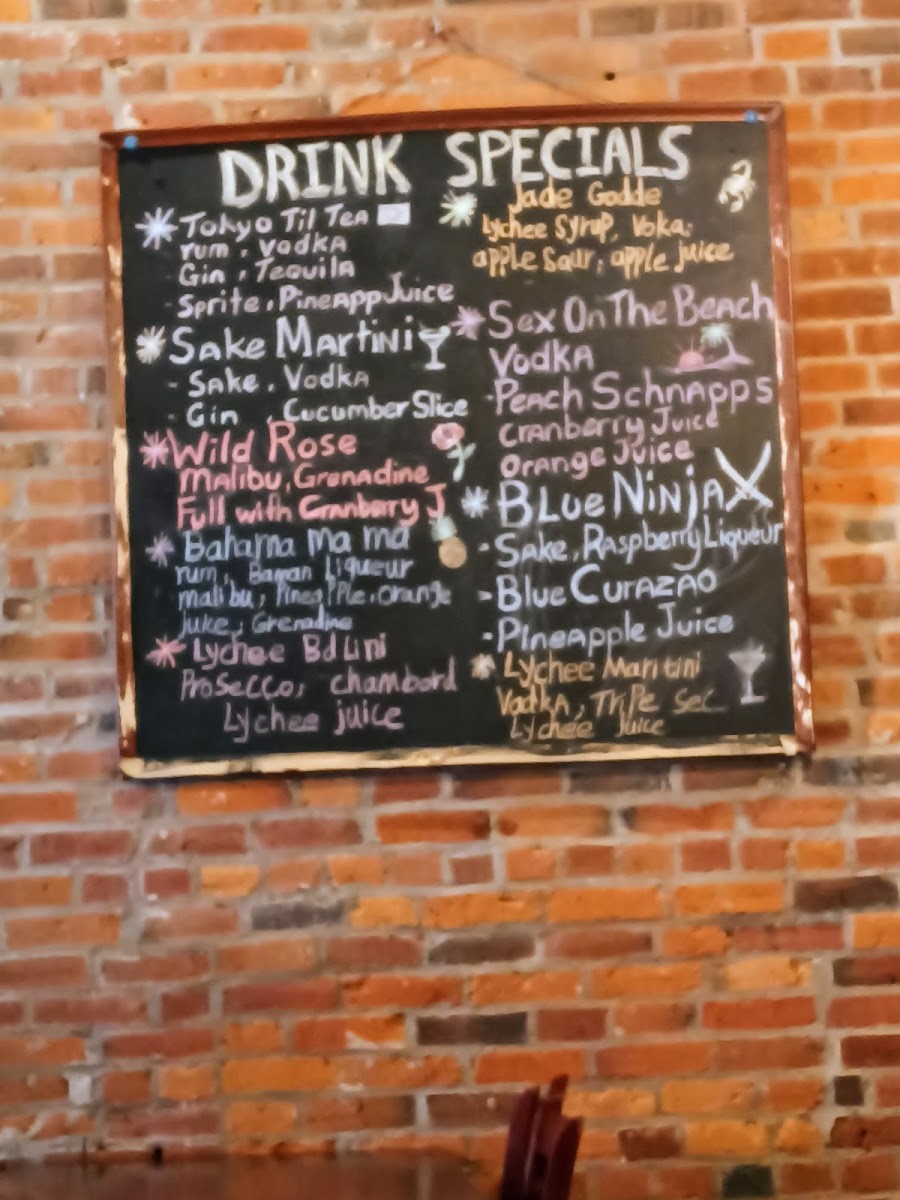 DRINK SPECIALS
Tokyo Til Tea
rum, vodka
Gin, Tequila
- Sprite, PineApp Juice
Sake Martini
- Sake, Vodka
- Gin, Cucumber Slice
Wild Rose
Malibu, Grenadine
Full with Cranberry J
Bahama ma ma
rum, Banan Liqueur
malibu, PineaPPle, Orange
juke, Grenadine
Lychee Bdlini
Prosecco, chambord
Lychee juice
Jade Godde
Lychee Syrup, Voka,
apple Saur, apple juice
Sex On The Beach
Vodka
- Peach Schnapps
Cranberry Juice
Orange Juice
Blue Ninja
- Sake, Raspberry Liqueur
- Blue Curazao
- Pineapple Juice
Lychee Maritini
Vodka, TriPe Sec
Lychee Juice